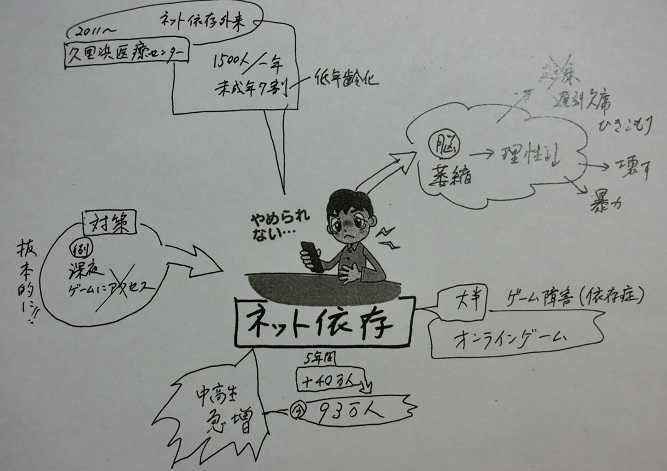 2011～ ネット依存外来
久里浜医療センター
1500人/一年
未成年7割
低年齢化
脳
萎縮 → 理性乱
遅刻欠席
ひきこもり
壊す
暴力
やめられ
ない…
対策
例
深夜
ゲームにアクセス
抜本的に!!
ネット依存
大半 ゲーム障害(依存症)
オンラインゲーム
中高生
急増
5年間
+40万人
93万人